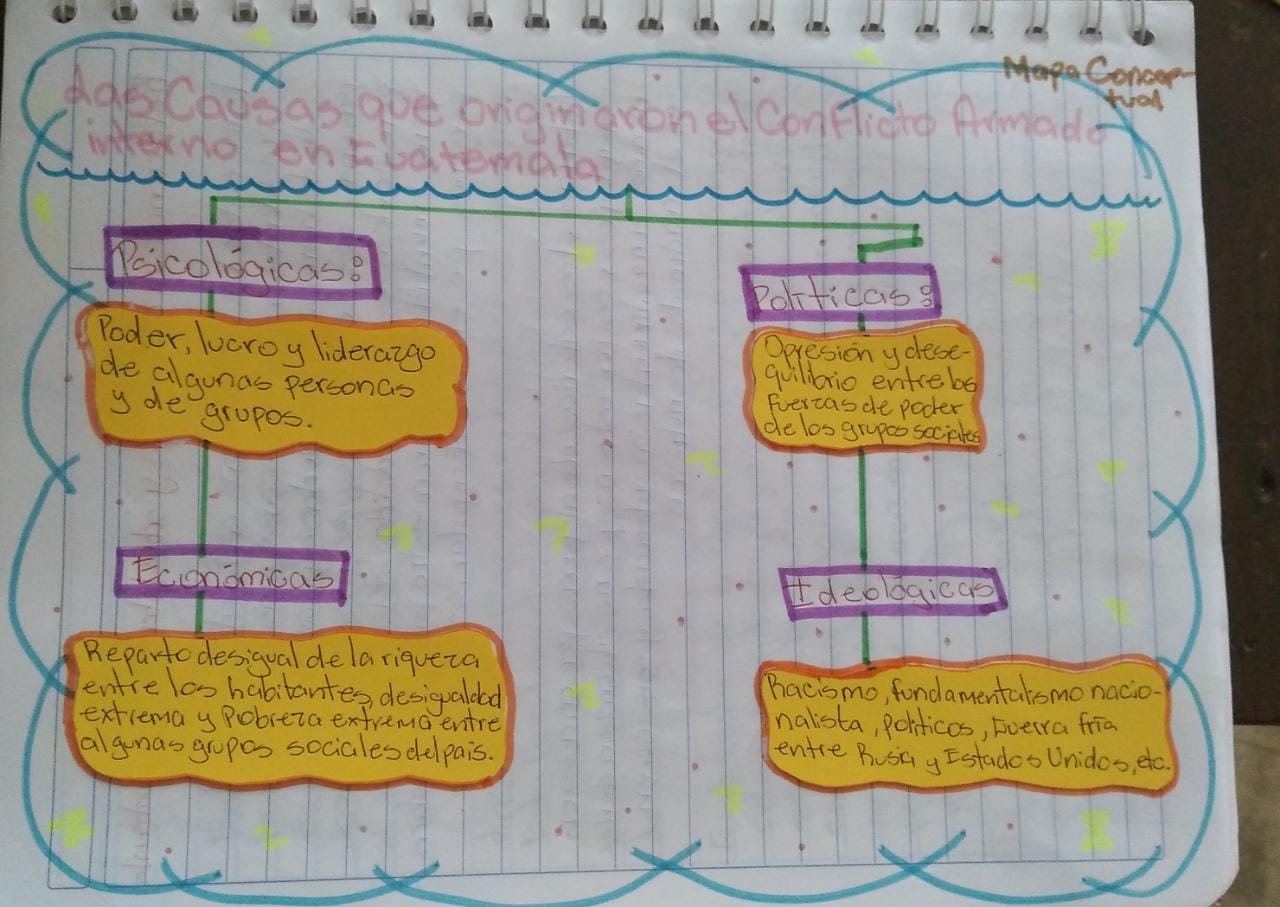 Mapa Concep-
tual
Las Causas que originaron el Conflicto Armado
interno en Guatemala
Psicológicas:
Poder, lucro y liderazgo
de algunas personas
y de grupos.
Económicas
Reparto desigual de la riqueza
entre los habitantes, desigualdad
extrema y Pobreza extrema entre
algunas grupos sociales del país.
Políticas:
Opresión y dese-
quilibrio entre las
fuerzas de poder
de los grupos sociales
Ideológicas
Racismo, fundamentalismo nacio-
nalista, políticos, Guerra fría
entre Rusia y Estados Unidos, etc.